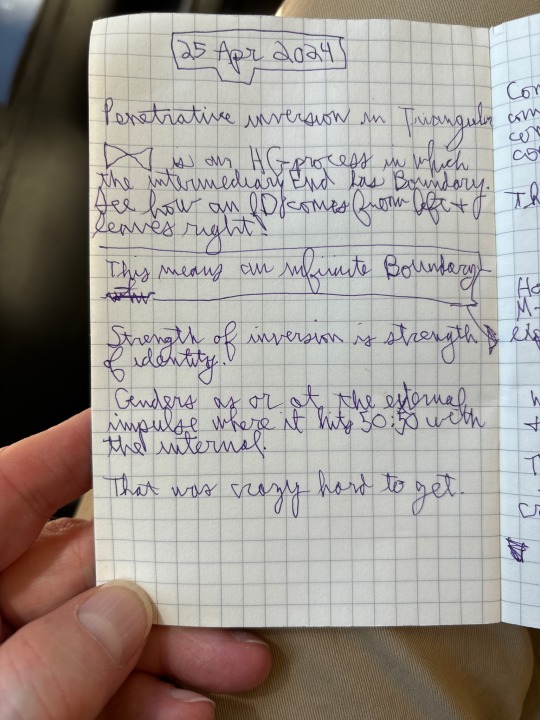 25 Apr 2024
Penetrative inversion in Triangular
is an HG process in which
the intermediary End has Boundary.
See how an ID comes from left +
leaves right!
This means an infinite Boundary
Strength of inversion is strength
of identity.
Genders as or at the external
impulse where it hits 50:50 with
the internal.
That was crazy hard to get.
Con
com
co
Th
Ho
M-
T